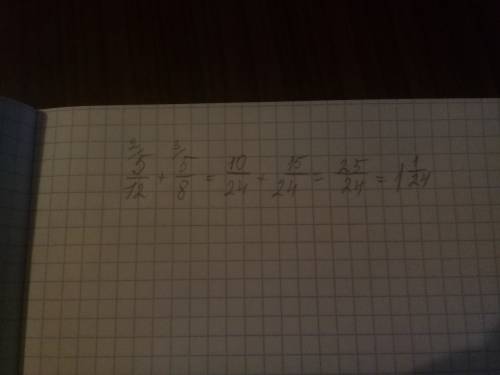 2/ 5/12 + 3/ 5/8 = 10/24 + 15/24 = 25/24 = 1 1/24